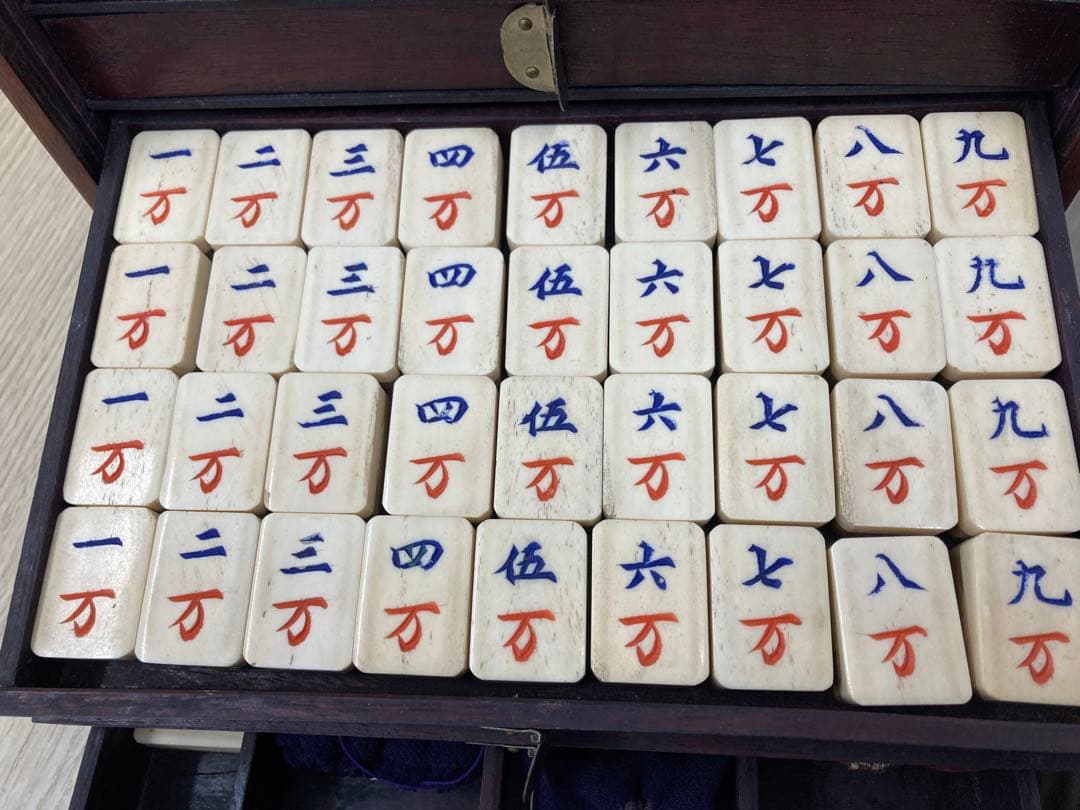 一 二 三 四 伍 六 七 八 九
万 万 万 万 万 万 万 万 万
一 二 三 四 伍 六 七 八 九
万 万 万 万 万 万 万 万 万
一 二 三 四 伍 六 七 八 九
万 万 万 万 万 万 万 万 万
一 二 三 四 伍 六 七 八 九
万 万 万 万 万 万 万 万 万